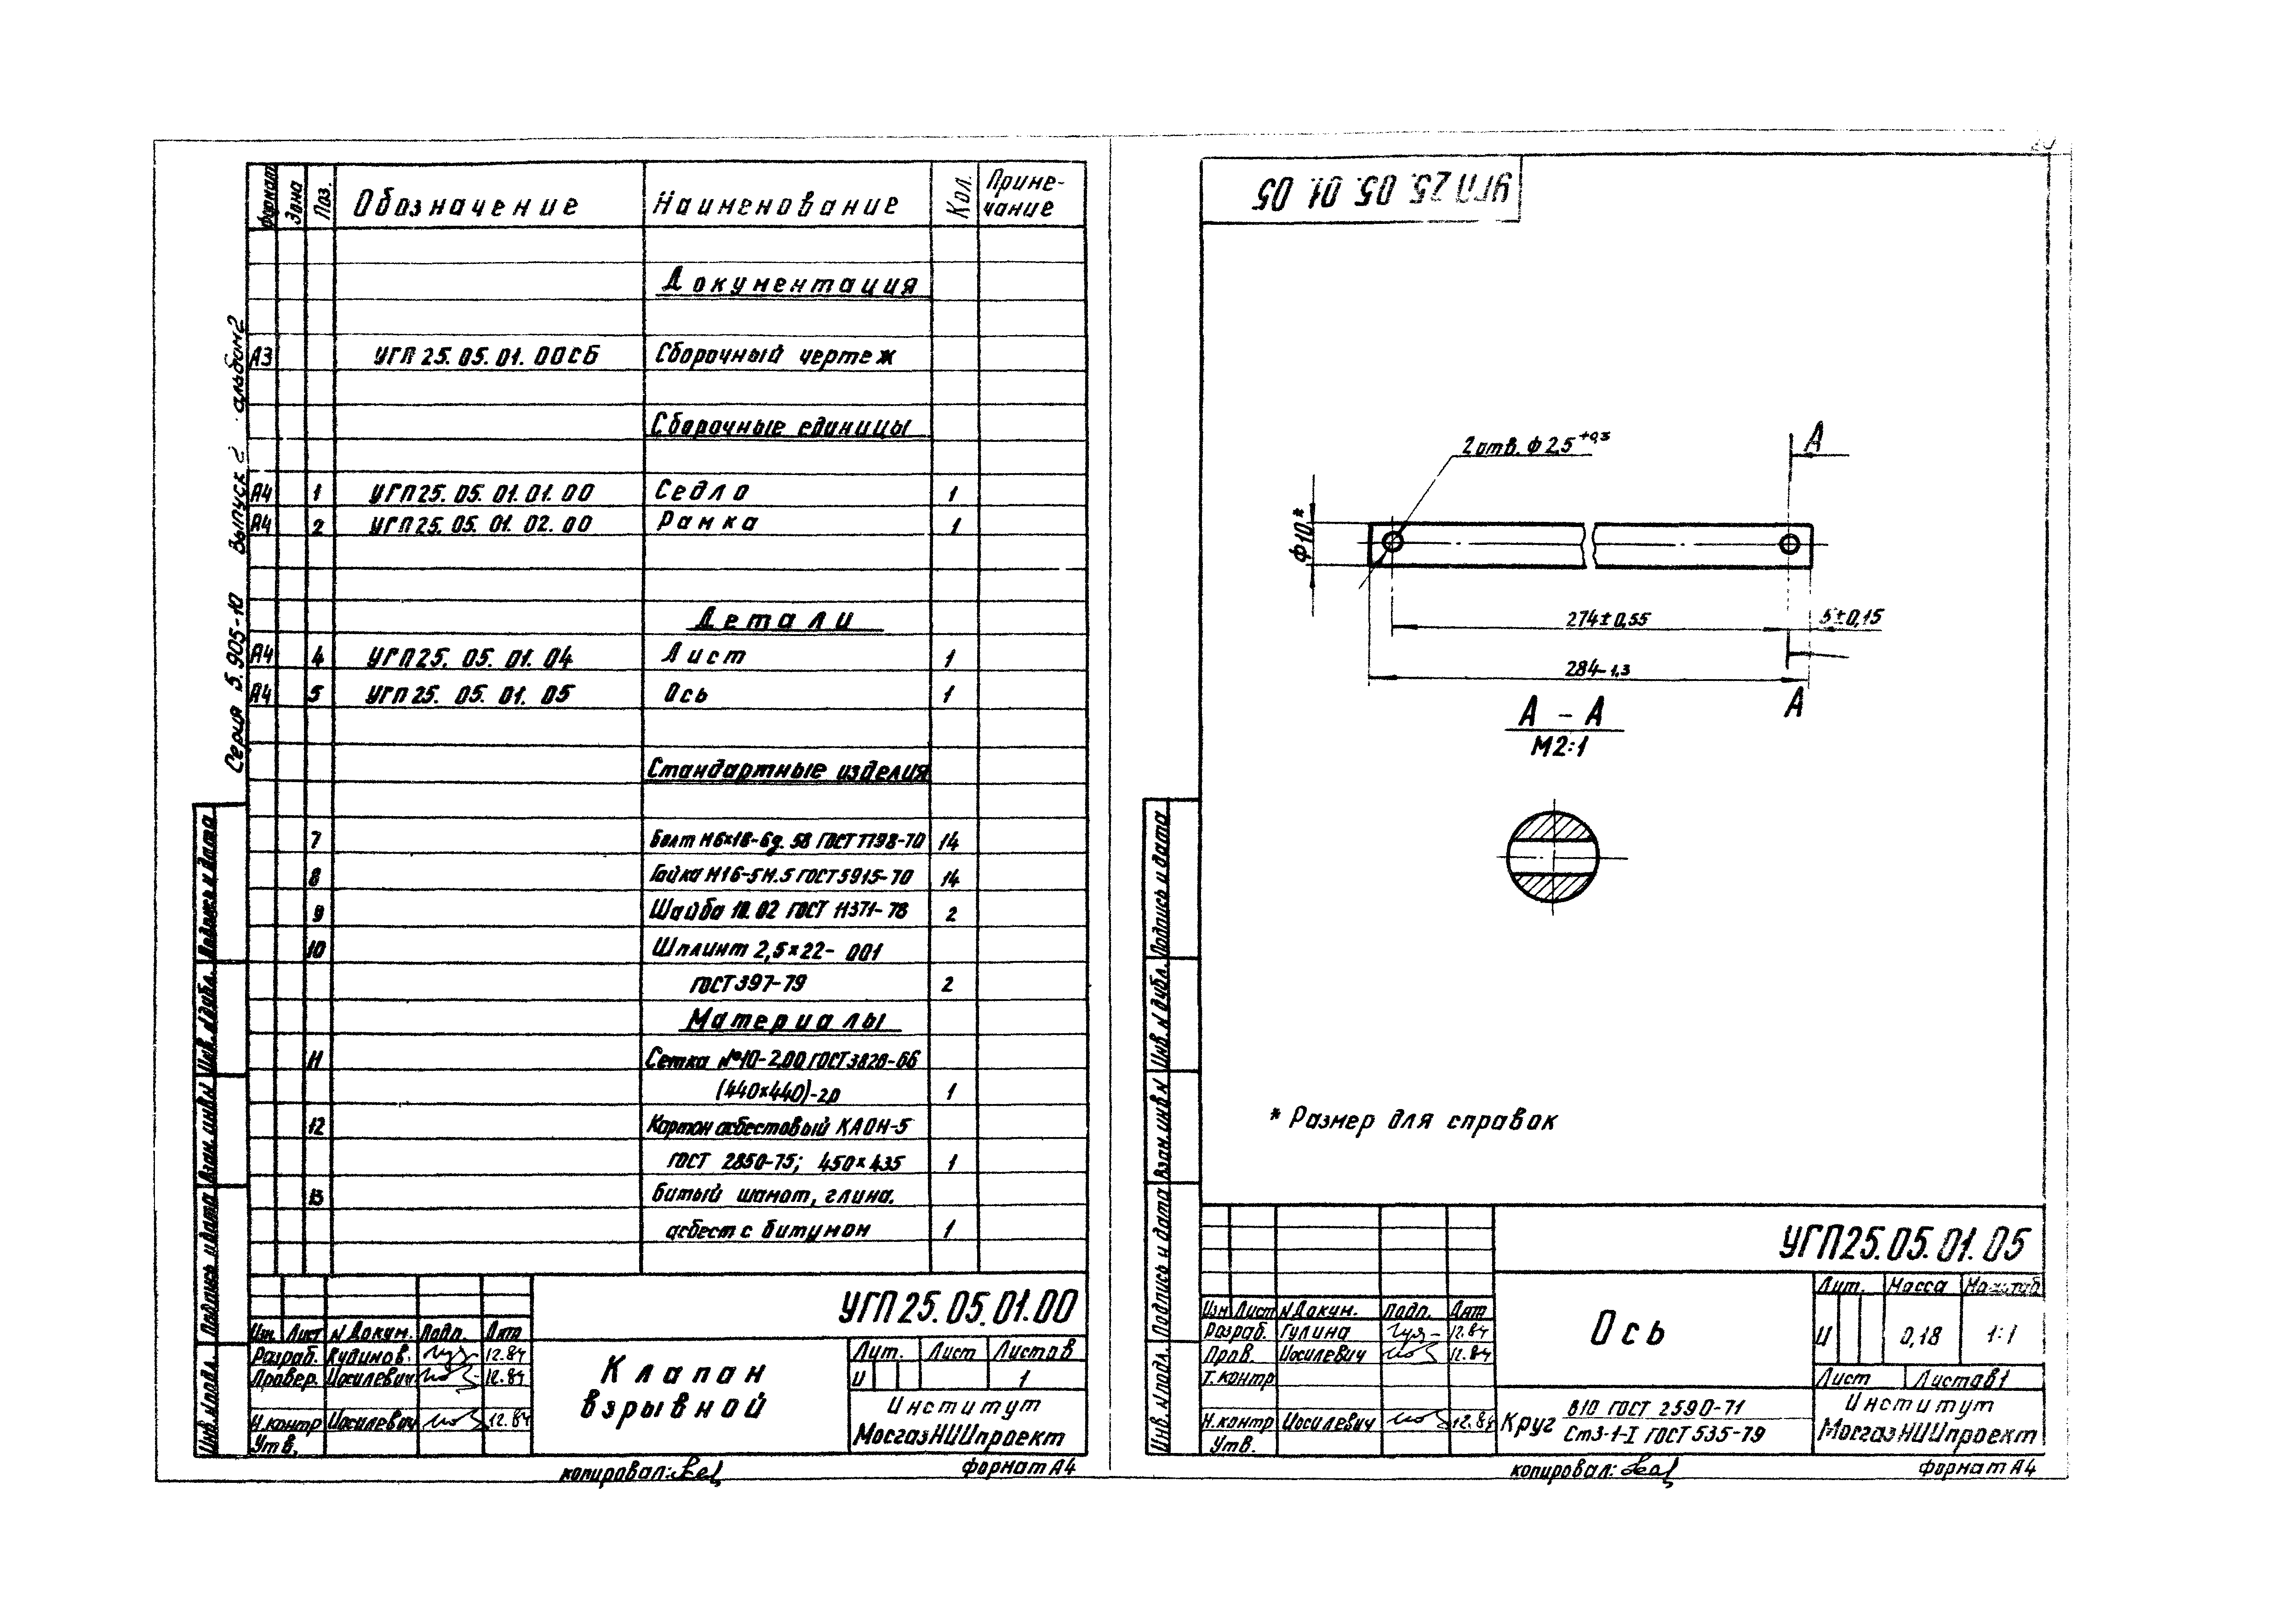 Серия 5.905-10 Выпуск 2 альбом 2
Формат Зона Поз. Обозначение Наименование Кол. Примечание
Документация
А3 УГП 25.05.01.00СБ Сборочный чертеж
Сборочные единицы
А4 1 УГП25.05.01.01.00 Седло 1
А4 2 УГП25.05.01.02.00 Рамка 1
Детали
А4 4 УГП25.05.01.04 Лист 1
А4 5 УГП25.05.01.05 Ось 1
Стандартные изделия
7 Болт М6×18-6g.58 ГОСТ 7798-70 14
8 Гайка М16-5Н.5 ГОСТ 5915-70 14
9 Шайба 10.02 ГОСТ 11371-78 2
10 Шплинт 2,5×22-001
ГОСТ 397-79 2
Материалы
11 Сетка №10-2.00 ГОСТ 3826-66
(440×440)-20 1
12 Картон асбестовый КАОН-5
ГОСТ 2850-75; 450×435 1
13 битый шамот, глина.
асбест с битумом 1
Инв.N подл. Подпись и дата Взам.инв.N Инв.N дубл. Подпись и дата
УГП25.05.01.00
Изм. Лист N Докум. Подп. Дата
Разраб. Кудинов. 12.84
Провер. Иосилевич 12.84
Н.контр Иосилевич 12.84
Утв.
Клапан
взрывной
Лит. Лист Листов
И 1
Институт
МосгазНИИпроект
копировал:
формат А4
УГП25.05.01.05
2 отв. ф 2,5 +0,3
А
ф10*
274±0,55
5±0,15
284-1,3
А
А - А
М2:1
* Размер для справок
Инв.N подл. Подпись и дата Взам.инв.N Инв.N дубл. Подпись и дата
УГП25.05.01.05
Изм Лист N Докум. Подп. Дата
Разраб. Гулина 12.84
Пров. Иосилевич 12.84
Т.контр
Н.контр Иосилевич 12.84
Утв.
Ось
Лит. Масса Масштаб
И 0,18 1:1
Лист Листов 1
Круг В10 ГОСТ 2590-71
Ст3-1-I ГОСТ 535-79
Институт
МосгазНИИпроект
копировал:
формат А4